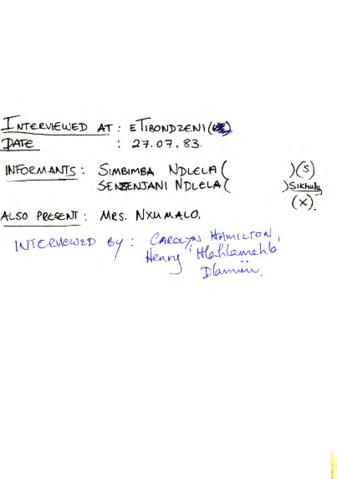 INTERVIEWED AT : eTIBONDZENI
DATE : 27.07.83.
INFORMANTS : SIMBIMBA NDLELA ( )(S)
SENZENJANI NDLELA ( )Sikhulu
(X).
ALSO PRESENT : MRS. NXUMALO.
INTERVIEWED BY : CAROLYN HAMILTON,
Henry Hlahlamehlo
Dlamini.